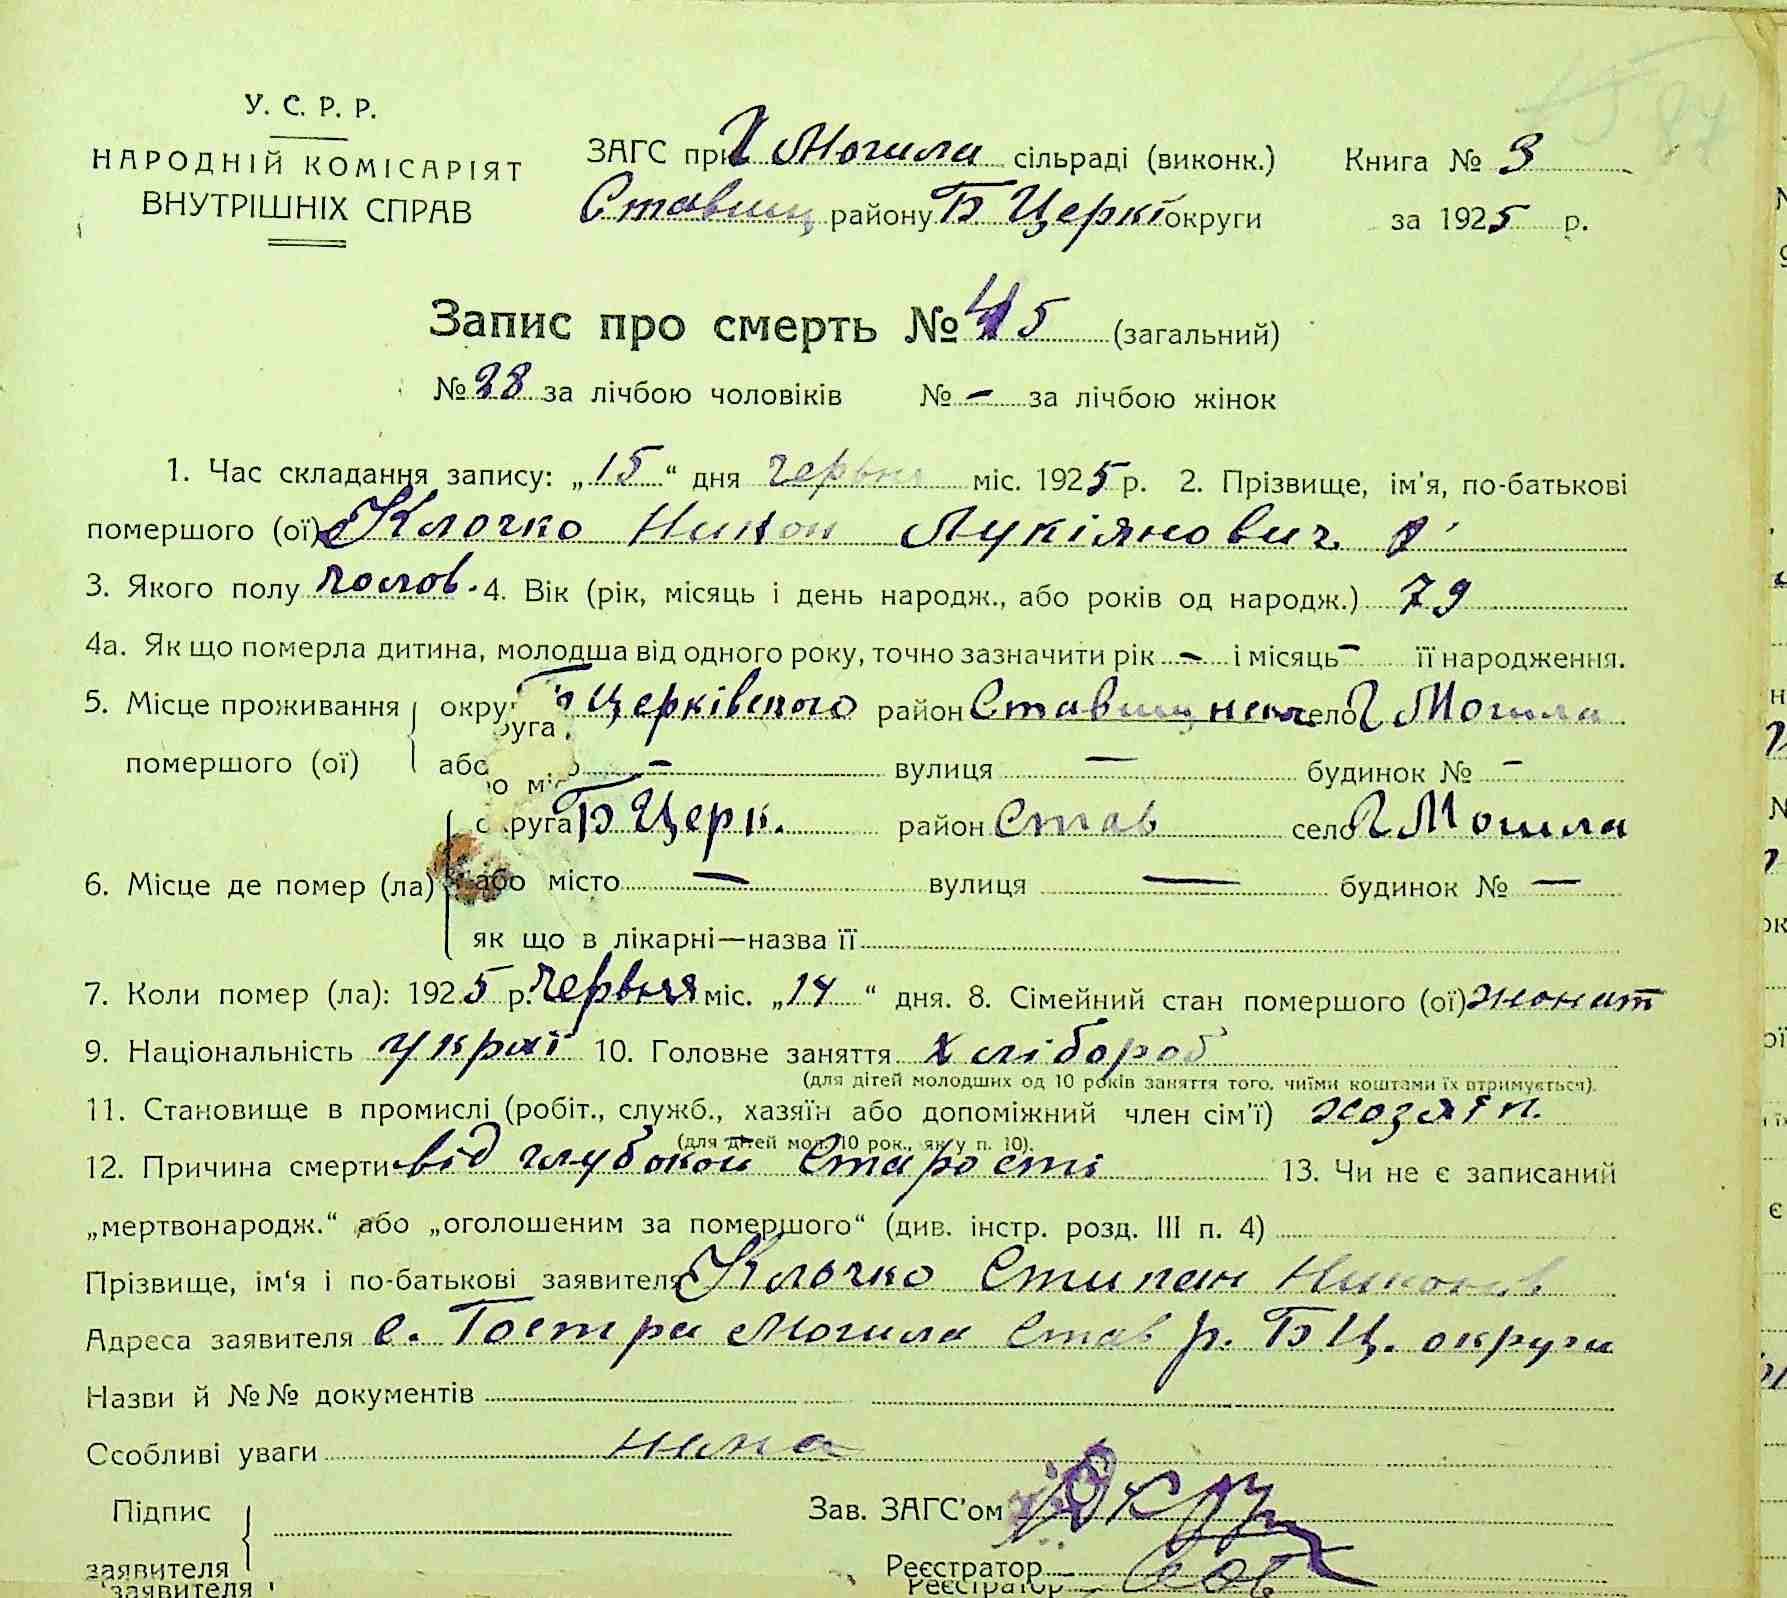 У. С. Р. Р.
НАРОДНІЙ КОМІСАРІЯТ
ВНУТРІШНІХ СПРАВ
ЗАГС при Г Могила сільраді (виконк.) Книга № 3
Ставищ району Б Церкі округи за 1925 р.
Запис про смерть № 45 (загальний)
№ 28 за лічбою чоловіків № - за лічбою жінок
1. Час складання запису: „15“ дня червня міс. 1925 р. 2. Прізвище, ім'я, по-батькові
помершого (ої) Клочко Никон Лукіянович
3. Якого полу чолов. 4. Вік (рік, місяць і день народж., або років од народж.) 79
4а. Як що померла дитина, молодша від одного року, точно зазначити рік - і місяць - її народження.
5. Місце проживання округа Б Церківського район Ставищ село Г Могила
помершого (ої) або місто - вулиця - будинок № -
округа Б Церк. район Став село Г Могила
6. Місце де помер (ла) або місто - вулиця - будинок № -
як що в лікарні—назва її
7. Коли помер (ла): 1925 р. Червня міс. „14“ дня. 8. Сімейний стан помершого (ої) жонат
9. Національність украї 10. Головне заняття хлібороб
(для дітей молодших од 10 років заняття того, чиїми коштами їх втримується).
11. Становище в промислі (робіт., служб., хазяїн або допоміжний член сім'ї) хозяїн.
(для дітей мол. 10 рок., як у п. 10).
12. Причина смерти від глубокой старості 13. Чи не є записаний
„мертвонародж.“ або „оголошеним за помершого“ (див. інстр. розд. III п. 4)
Прізвище, ім‘я і по-батькові заявителя Клочко Стипан Никонов
Адреса заявителя с. Гостра Могила Став р. БЦ. округи
Назви й №№ документів
Особливі уваги нима
Підпис Зав. ЗАГС'ом
заявителя Реєстратор
заявителя Реєстратор